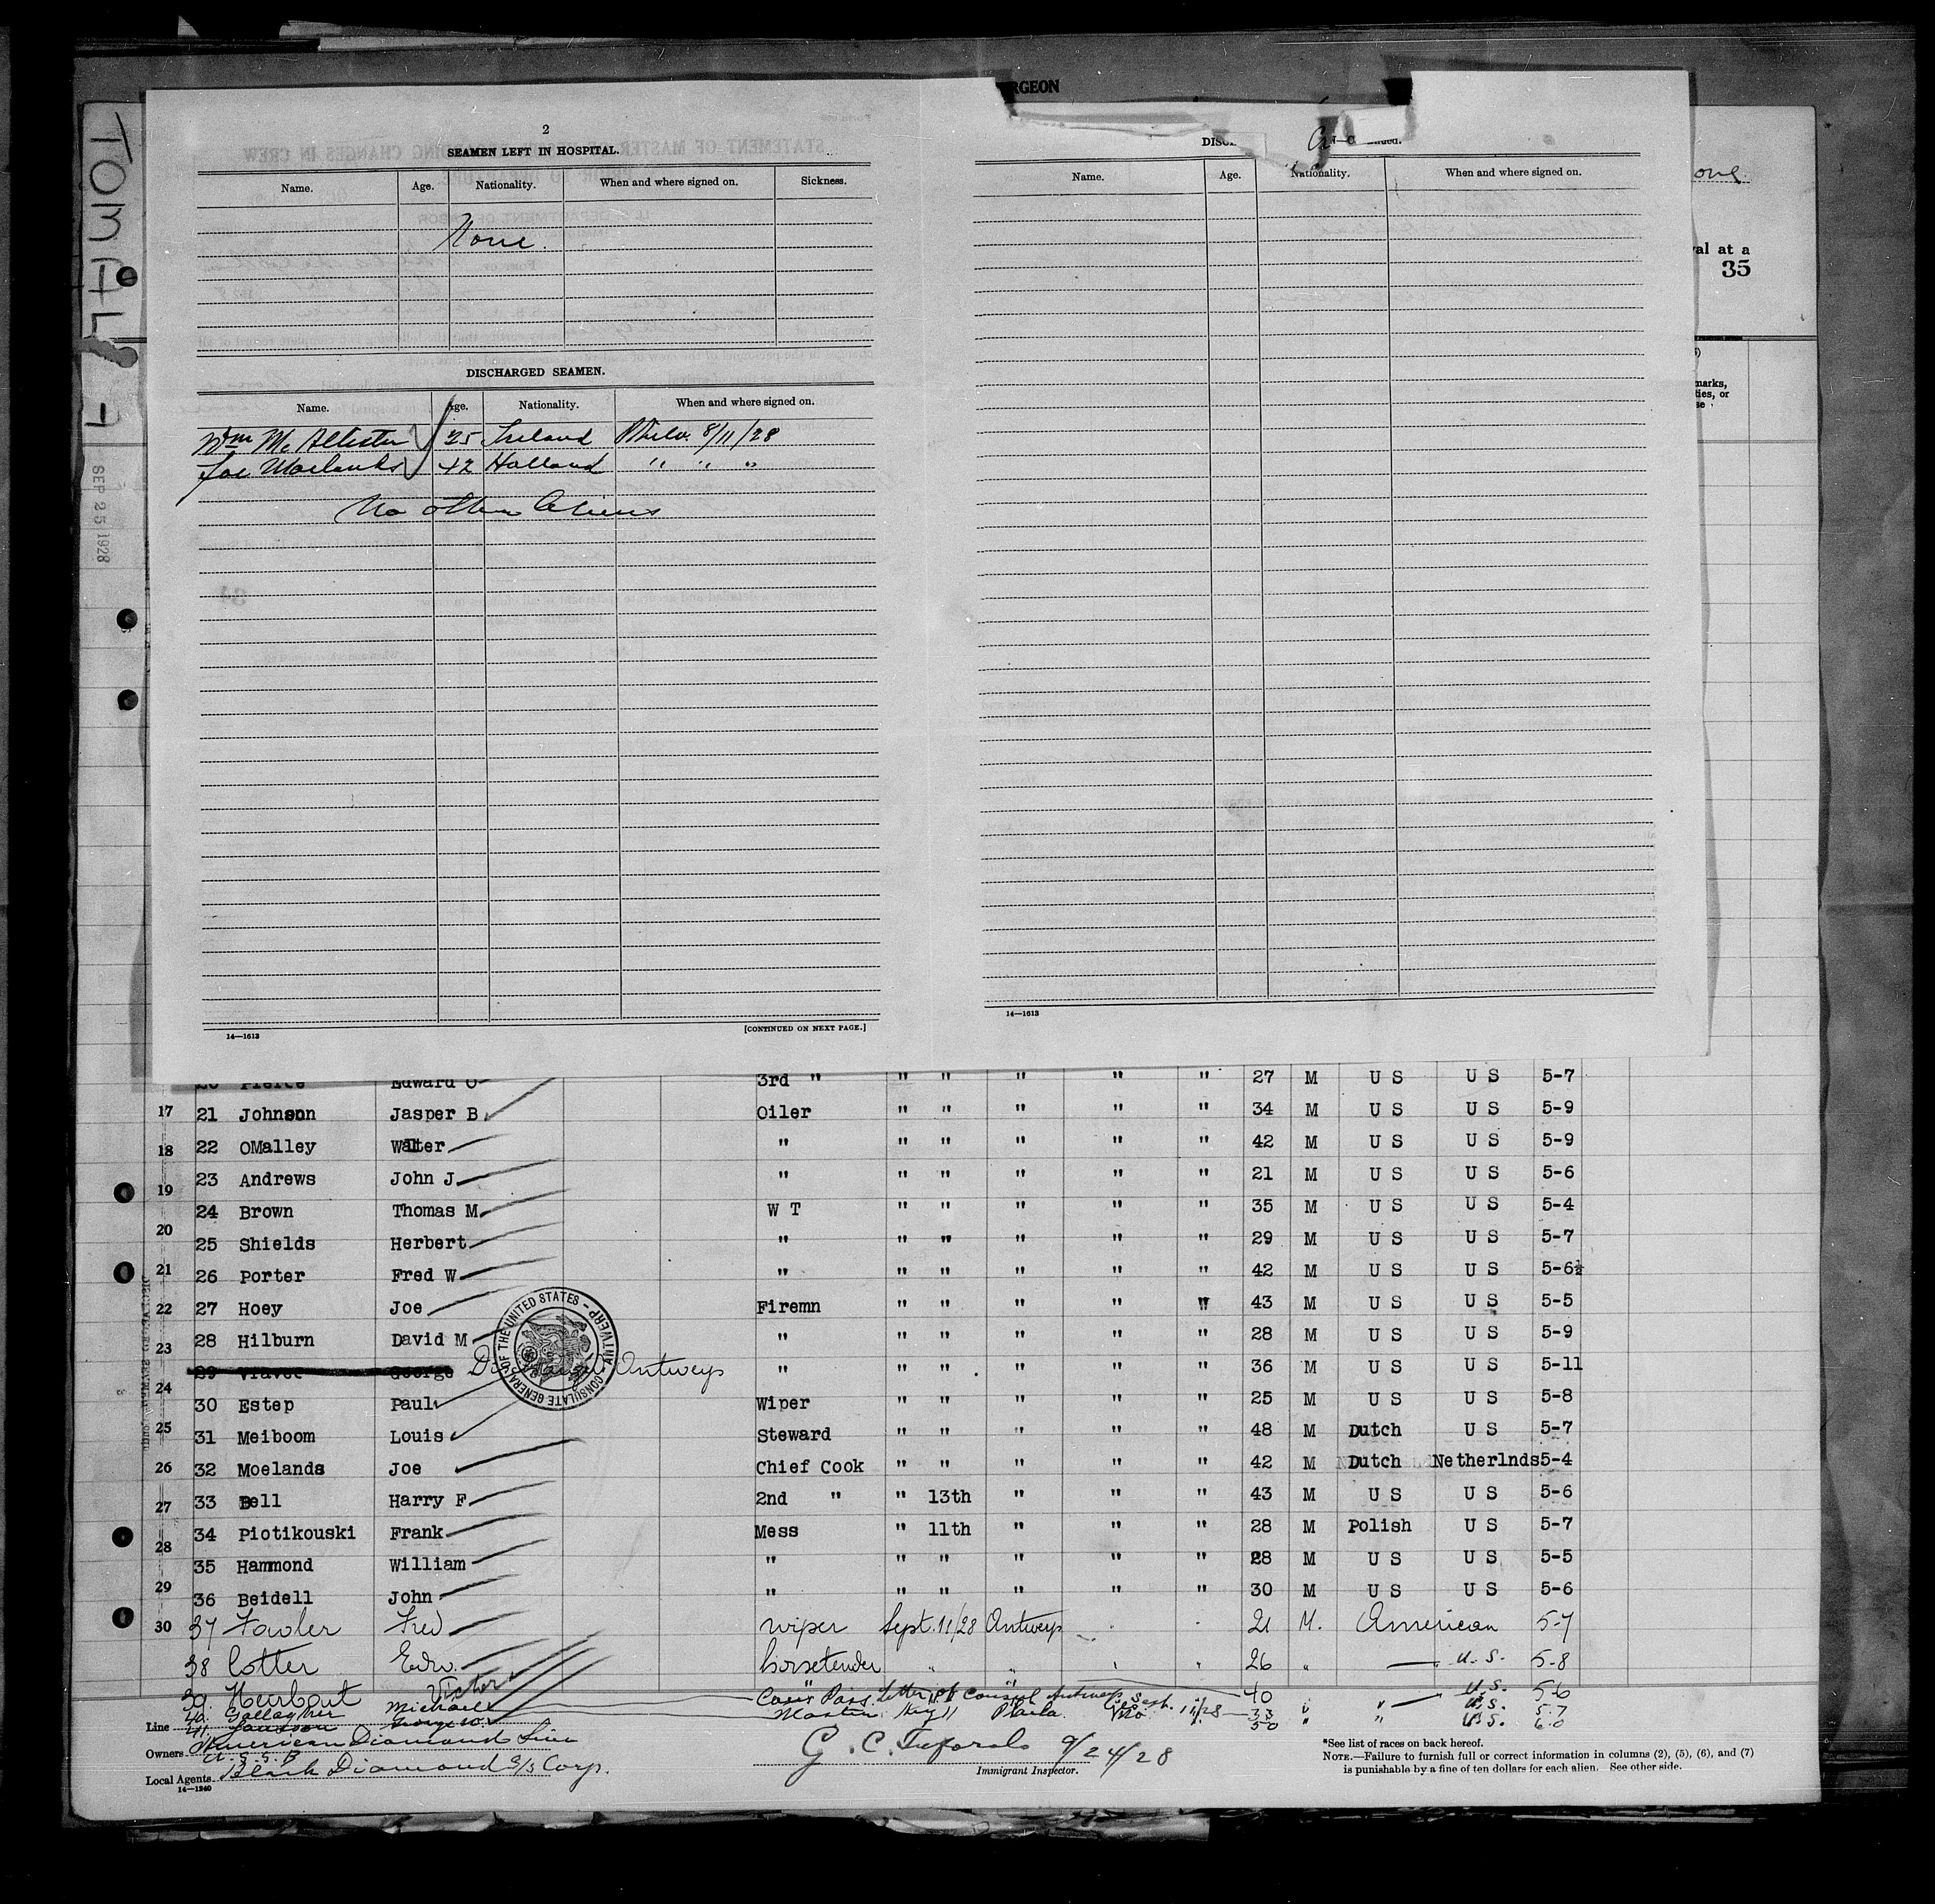 RGEON
TOMALV
SEP 25 1928
2
SEAMEN LEFT IN HOSPITAL.
Name. Age. Nationality. When and where signed on. Sickness.
None.
DISCHARGED SEAMEN.
Name. Age. Nationality. When and where signed on.
Wm McAllister 25 Ireland Phila. 8/11/28
Joe Moelands 42 Holland " " "
No other Aliens
14—1613 [CONTINUED ON NEXT PAGE.]
Name. Age. Nationality. When and where signed on.
14—1613
val at a
35
marks,
ties, or
se
20 Pierce Edward O 3rd " " " " " " 27 M U S U S 5-7
17 21 Johnson Jasper B Oiler " " " " " 34 M U S U S 5-9
18 22 OMalley Walter " " " " " " 42 M U S U S 5-9
19 23 Andrews John J " " " " " " 21 M U S U S 5-6
24 Brown Thomas M W T " " " " " 35 M U S U S 5-4
20 25 Shields Herbert " " " " " " 29 M U S U S 5-7
21 26 Porter Fred W " " " " " " 42 M U S U S 5-6½
22 27 Hoey Joe Firemn " " " " " 43 M U S U S 5-5
23 28 Hilburn David M " " " " " " 28 M U S U S 5-9
29 George Antwerp " " " " " " 36 M U S U S 5-11
24 30 Estep Paul Wiper " " " " " 25 M U S U S 5-8
25 31 Meiboom Louis Steward " " " " " 48 M Dutch U S 5-7
26 32 Moelands Joe Chief Cook " " " " " 42 M Dutch Netherlnds 5-4
27 33 Bell Harry F 2nd " " 13th " " " 43 M U S U S 5-6
28 34 Piotikouski Frank Mess " 11th " " " 28 M Polish U S 5-7
35 Hammond William " " " " " " 28 M U S U S 5-5
29 36 Beidell John " " " " " " 30 M U S U S 5-6
30 37 Fowler Fred wiper Sept. 11/28 Antwerp 21 M. American 5-7
38 Cotter Edw. horsetender " " 26 " U.S. 5-8
39. Victor Letter of Consul Antwerp 40 U.S. 5-6
40. Gallagher Michael 33 " " U.S. 5-7
41. 50 " " U.S. 6-0
Line American Diamond Line
Owners U.S.S.B
Local Agents Black Diamond S/S Corp.
14—1240
9/24/28
Immigrant Inspector.
CONSULATE GENERAL OF THE UNITED STATES - ANTWERP
*See list of races on back hereof.
NOTE.—Failure to furnish full or correct information in columns (2), (5), (6), and (7)
is punishable by a fine of ten dollars for each alien. See other side.